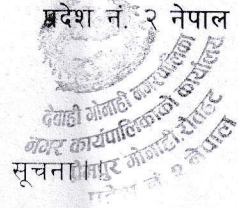 प्रदेश नं. २ नेपाल
देवाही गोनाही नगरपालिका
नगर कार्यपालिकाको कार्यालय
गोनाही रौतहट
प्रदेश नं. २ नेपाल
सूचना।।